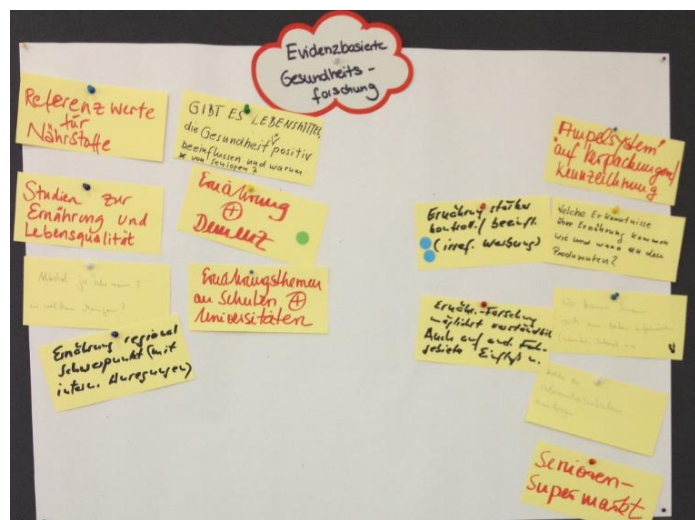 Evidenzbasierte
Gesundheits-
forschung
Referenzwerte
für
Nährstoffe
Studien zur
Ernährung und
Lebensqualität
Alkohol ja oder nein?
in welchen Mengen?
Ernährung regional
Schwerpunkt (mit
intern. Anregungen)
GIBT ES LEBENSMITTEL,
die Gesundheit positiv
beeinflussen und warum
* von Senioren?
Ernährung
+
Demenz
Ernährungsthemen
an Schulen +
Universitäten
Ernährung stärker
kontroll./ beeinfl.
(irref. Werbung)
Ernähr.-Forschung
möglichst verständlich
Auch auf and. Fach-
gebiete
"Ampelsystem"
auf Verpackungen/
Kennzeichnung
Welche Erkenntnisse
über Ernährung kommen
wie und wann zu den
Produzenten?
Senioren-
Supermarkt